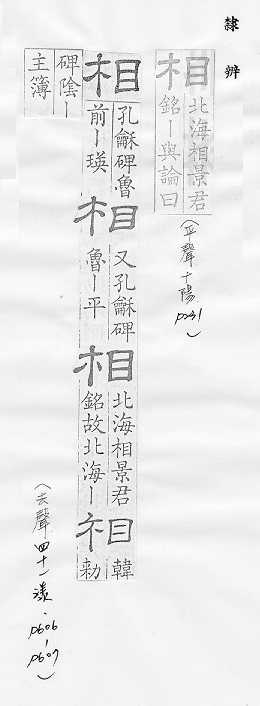 隸辨
相
北海相景君
銘ー與論曰
(平聲十陽 p231)
相
孔龢碑魯
前ー瑛
相
又孔龢碑
魯ー平
相
北海相景君
銘故北海ー
相
韓
勑
碑陰ー
主簿
(去聲四十一漾.p606-p607)